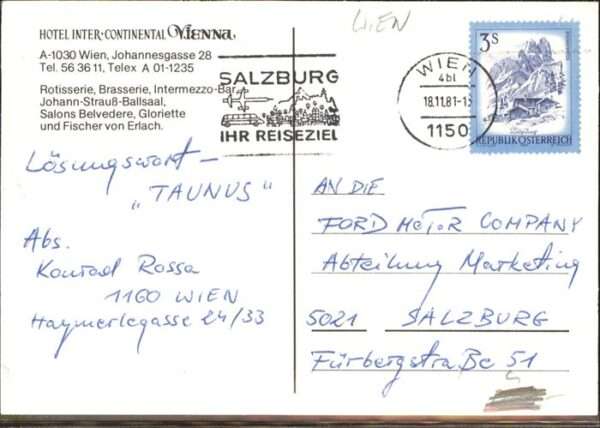 HOTEL INTER·CONTINENTAL VIENNA
A-1030 Wien, Johannesgasse 28
Tel. 56 36 11, Telex A 01-1235
Rotisserie, Brasserie, Intermezzo-Bar,
Johann-Strauß-Ballsaal,
Salons Belvedere, Gloriette
und Fischer von Erlach.
WIEN
SALZBURG
IHR REISEZIEL
WIEN
4bl
18.11.81-1
1150
3S
REPUBLIK ÖSTERREICH
Lösungswort -
„TAUNUS"
Abs.
Konrad Rossa
1160 WIEN
Haymerlegasse 24/33
AN DIE
FORD MOTOR COMPANY
Abteilung Marketing
5021 SALZBURG
Fürbergstraße 51